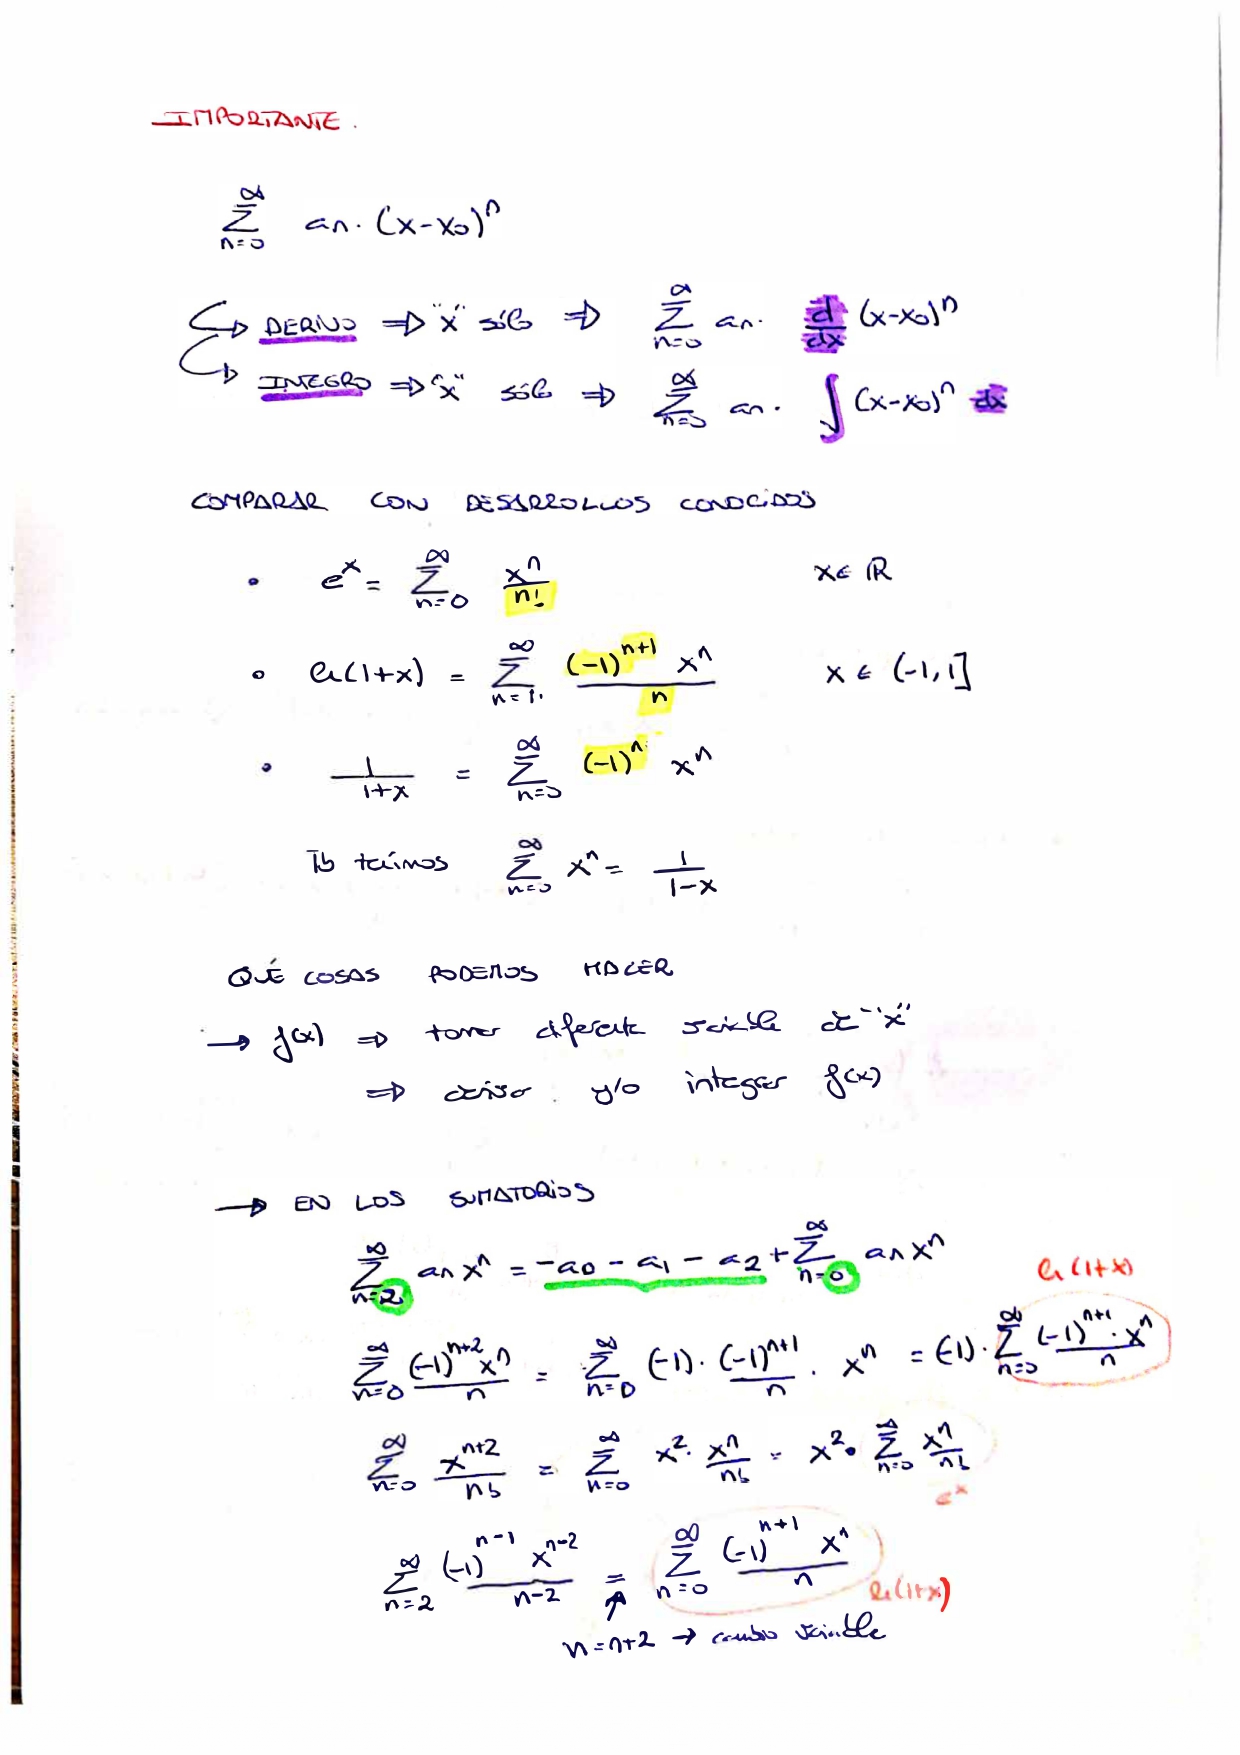 IMPORTANTE.
∞ Σ n=0 an· (x-x0)^n
DERIVO ⇒ "x" sólo ⇒ ∞ Σ n=0 an· d/dx (x-x0)^n
INTEGRO ⇒ "x" sólo ⇒ ∞ Σ n=0 an· ∫ (x-x0)^n dx
COMPARAR CON DESARROLLOS CONOCIDOS
• e^x = ∞ Σ n=0 x^n/n! x ∈ ℝ
• ln(1+x) = ∞ Σ n=1 (-1)^(n+1) x^n / n x ∈ (-1,1]
• 1/(1+x) = ∞ Σ n=0 (-1)^n x^n
Tb ∞ Σ n=0 x^n = 1/(1-x)
QUÉ COSAS PODEMOS HACER
→ f(x) ⇒ tomar diferente variable de "x"
⇒ derivar y/o integrar f(x)
→ EN LOS SUMATORIOS
∞ Σ n=2 an x^n = -a0 - a1 - a2 + ∞ Σ n=0 an x^n
ln(1+x)
∞ Σ n=0 (-1)^(n+2) x^n / n = ∞ Σ n=0 (-1)· (-1)^(n+1)/n · x^n = (-1)· ∞ Σ n=0 (-1)^(n+1)·x^n / n
∞ Σ n=0 x^(n+2)/n! = ∞ Σ n=0 x^2· x^n/n! = x^2· ∞ Σ n=0 x^n/n!
e^x
∞ Σ n=2 (-1)^(n-1) x^(n-2) / n-2 = ∞ Σ n=0 (-1)^(n+1) x^n / n ln(1+x)
n=n+2 → cambio variable